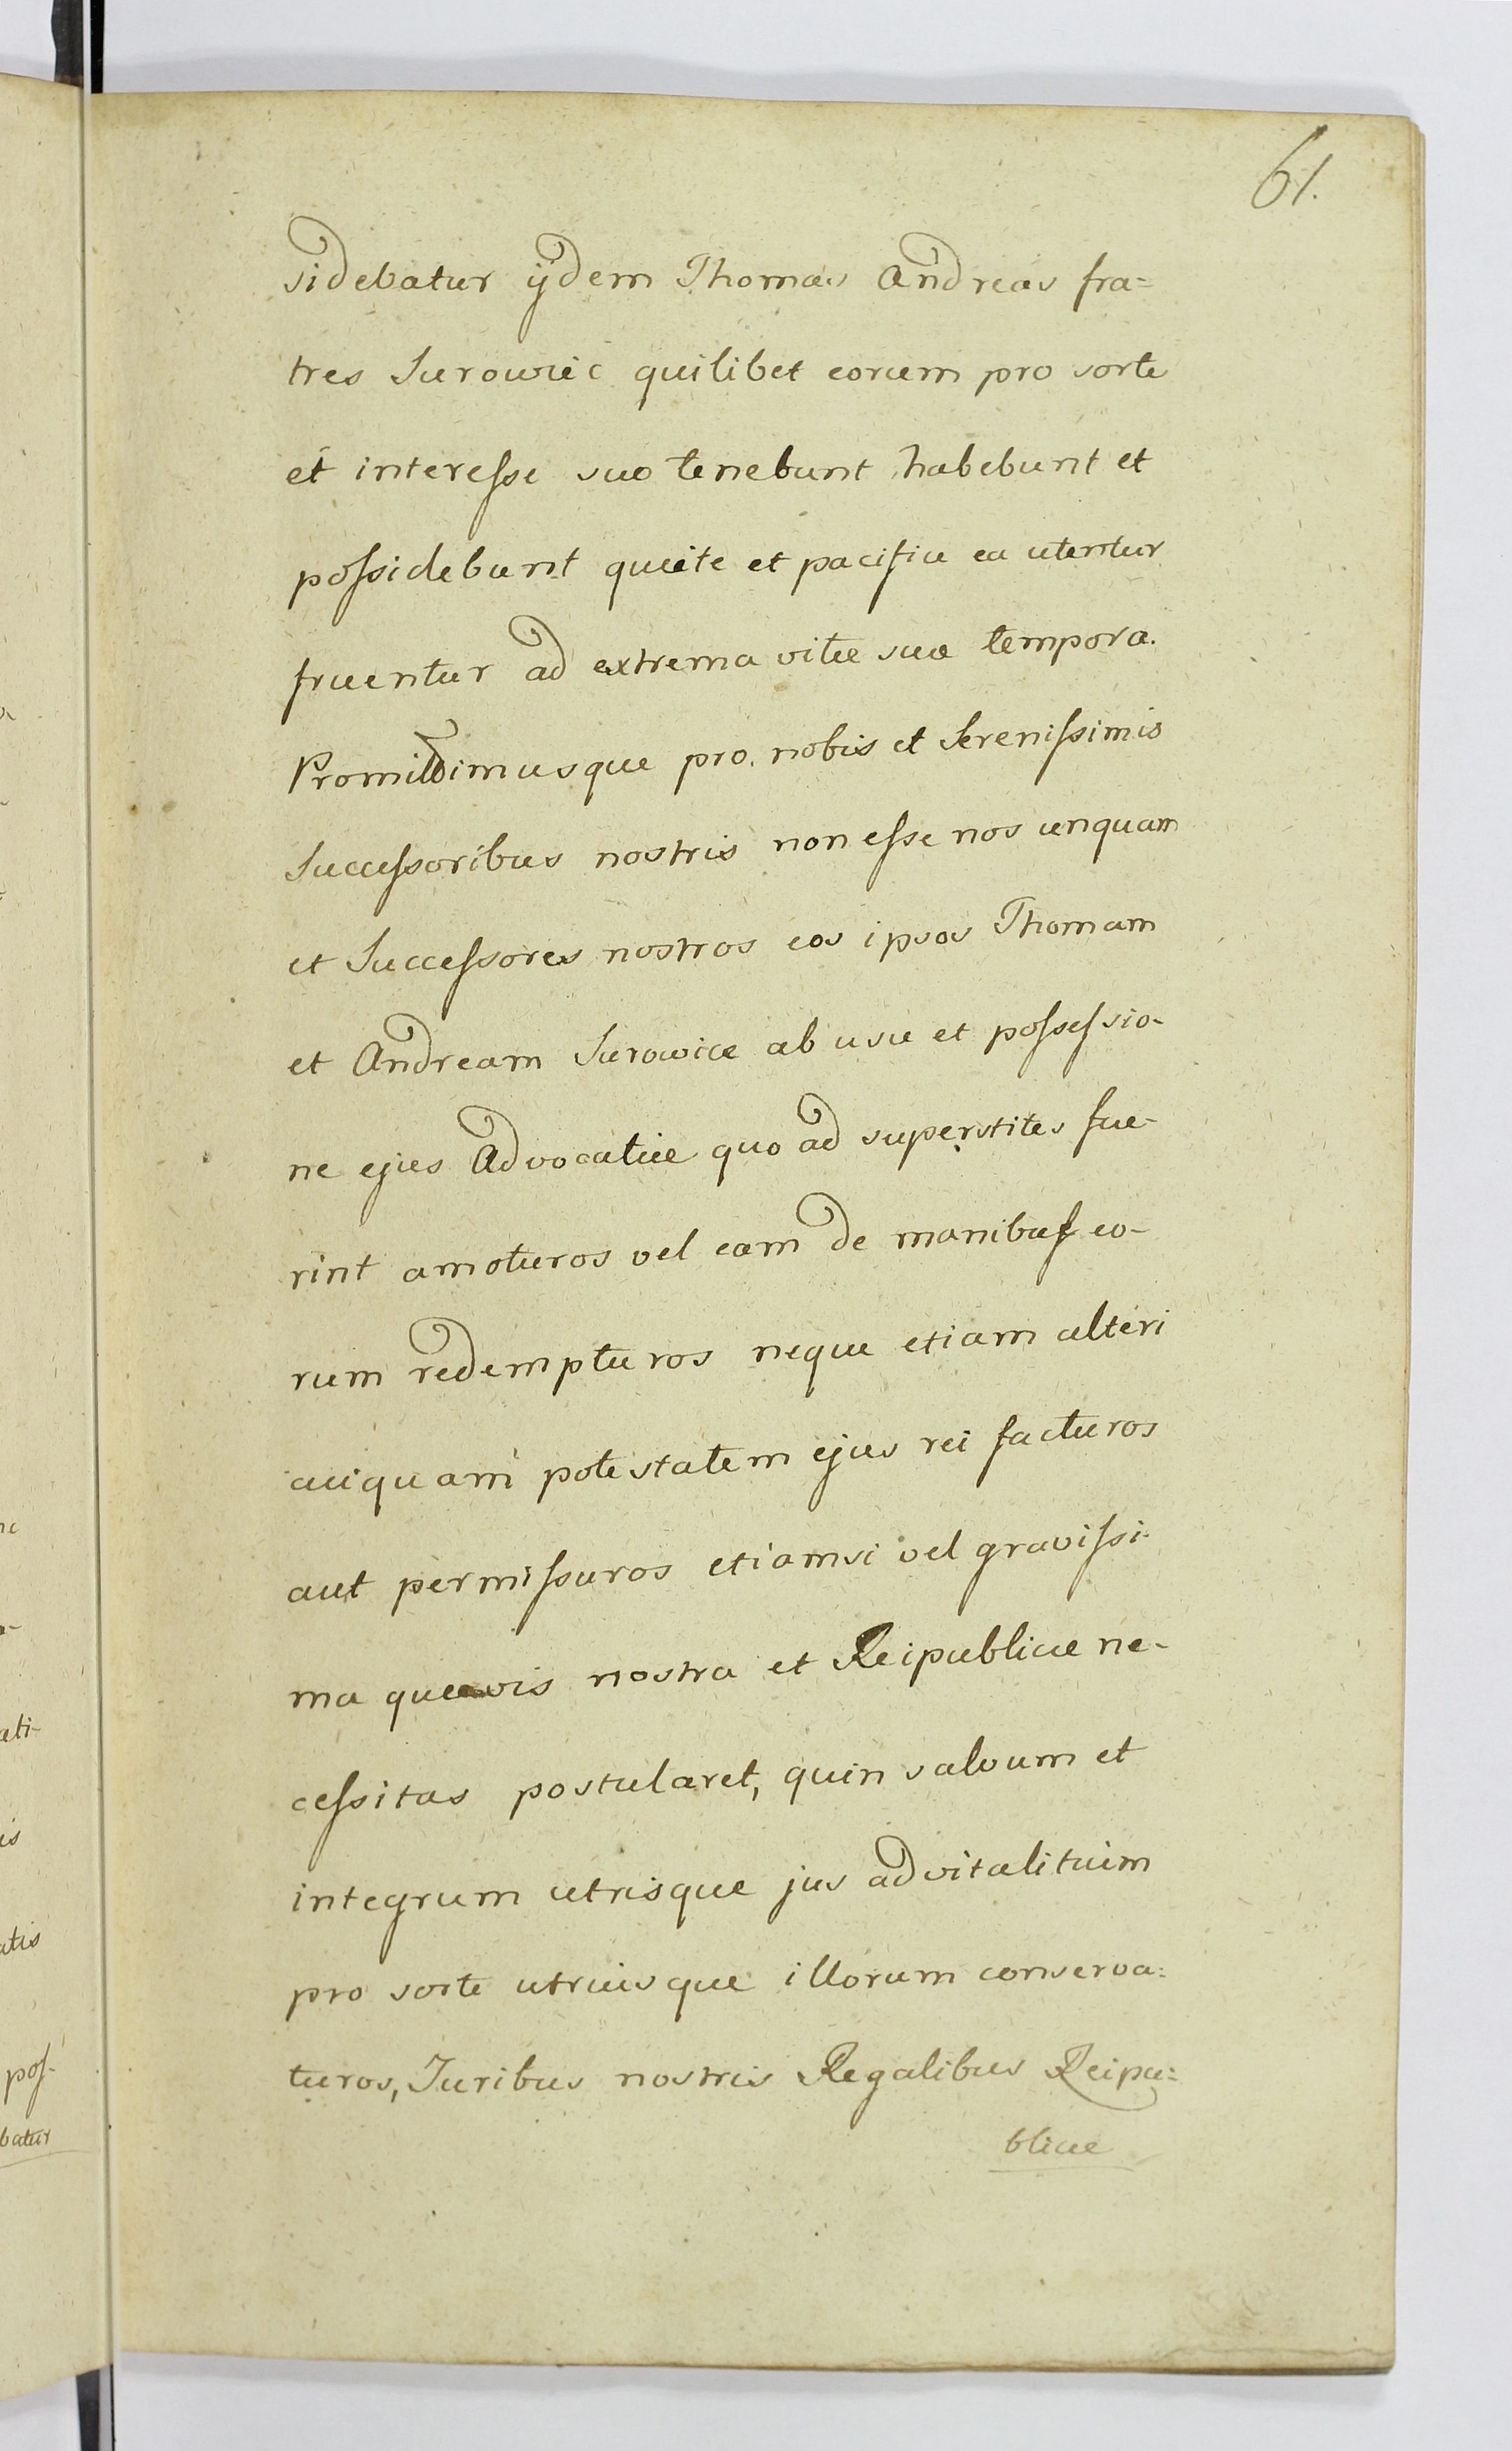 61.
sidebatur ijdem Thomas Andreas fra=
tres Surowiec quilibet eorum pro sorte
et interesse suo tenebunt habebunt et
possidebunt quiete et pacifice ea utentur
fruentur ad extrema vitæ suæ tempora.
Promittimusque pro nobis et Serenissimis
Successoribus nostris non esse nos unquam
et Successores nostros eos ipsos Thomam
et Andream Surowice ab usu et possessio-
ne ejus Advocatiæ quo ad superstites fue-
rint amoturos vel eam de manibus eo-
rum redempturos neque etiam alteri
cuiquam potestatem ejus rei facturos
aut permissuros etiamsi vel gravissi-
ma quævis nostra et Reipublicæ ne-
cessitas postularet, quin salvum et
integrum utrisque jus advitalitium
pro sorte utriusque illorum conserva=
turos, Juribus nostris Regalibus Reipu=
blicæ
pos-
batur